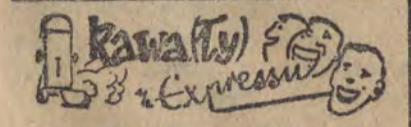 Kawa(ły)
z Expressu